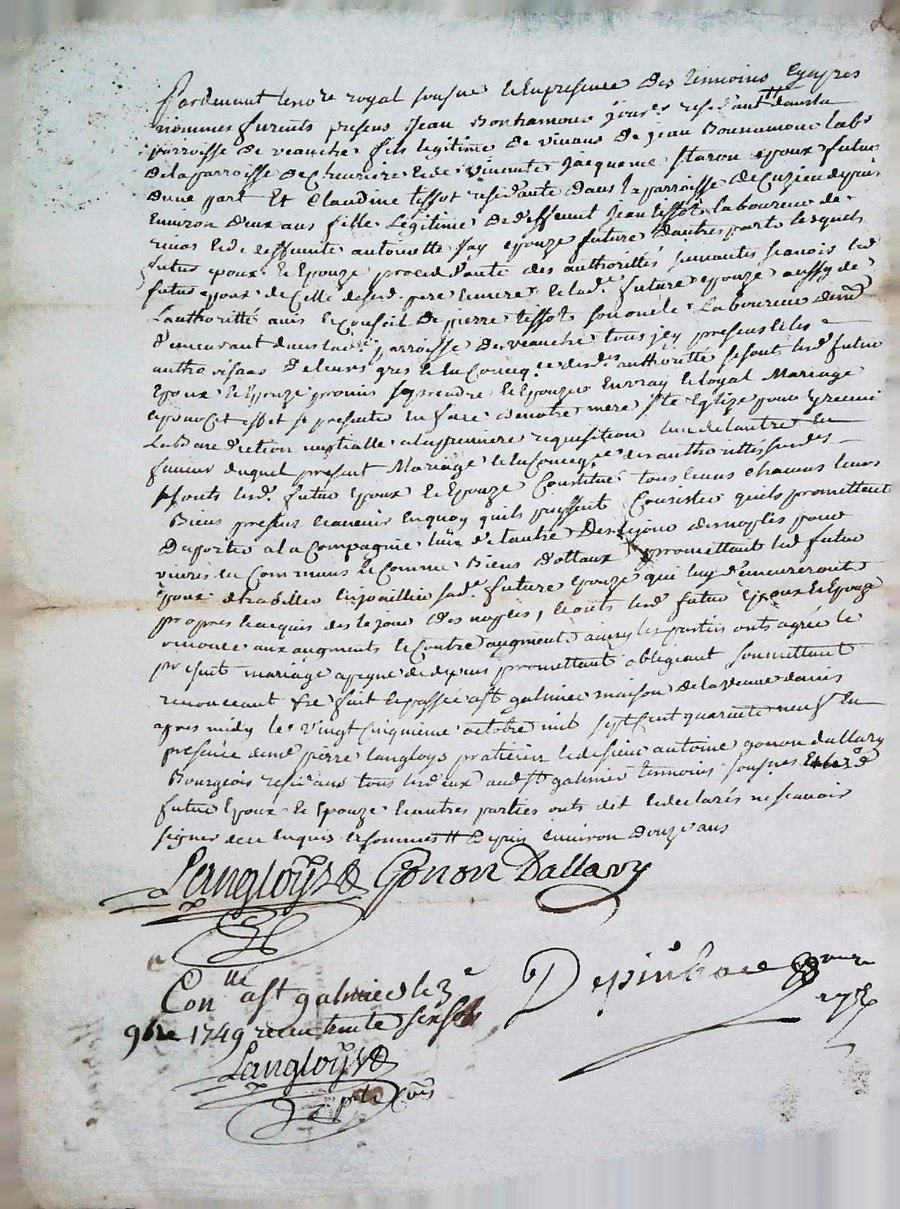 Pardevant le nore royal sousne et en presence des temoins cy apres
nommes furents presens Jean Bonhamour jour. residant # dans la
parroisse de veauche fils legitime de vivans de Jean Bonnamour lab.
de la parroisse de Chevriere et de vivante Jacqueme staron epoux futur
dune part Et Claudine tissot residante dans la parroisse de Cuzieu depuis
Environ deux ans fille Légitime de deffeunt Jean tissot laboureur de
et de deffunte antoinette Jay epouze future dautre part lesquels
futur epoux et Epouze procedd'ante des authorittés suivantes scavoir led.
futur epoux de Celle desd. pere et mere et lad. future epouze aussy de
Lauthoritté avis et Conseil de pierre tissot son oncle Laboureur
demeurant dans lad. parroisse de veauche tous icy presens et les
authorisans de leurs gres et en Conceqce desdes authoritté se sont led. futur
Epoux et Epouze promis se prendre et Epouzer en vray et loyal Mariage
et pour cet effet se presenter en face de notre mere ste Eglize pour y recevoir
La Benediction nuptialle a la premiere requisition lun de lautre En
faveur duquel present Mariage et en Conceqce des authorittés susdes
se sonts led. futur Epoux et Epouze Constitué tous et uns chacuns leurs
Biens presens et avenir en quoy quils puissent Consister quils promettent
dapporter a la Compagnie lun de lautre des le jour des nopces pour
vivre en Commun et Comme Biens dottaux promettant led. futur
Epoux dhabiller enjoailler sad. future Epouze qui luy demeureronts
propres et acquis des le jour des nopces, et onts led. futur Epoux et Epouze
renoncé aux augments et Contre augments ainsy les parties onts agréé le
present mariage a peyne de depens promettant obligeant soumettant
renonceant &c fait et passé a st galmier maison de la veuve
apres midy le vingt cinquieme octobre mil sept Cent quarante neuf En
presence de mr pierre Langloys praticien et de sieur antoine gonon dallary
Bourgeois residans tous les deux aud. st galmier temoins sousnes
futur Epoux et Epouze et autres parties onts dit et declarés ne scavoir
signer de ce enquis et sommes # depuis environ douze ans
Langloÿs Gonon Dallary
Conlle a st galmier le 3e
9bre 1749 recu trente six sols
Langloÿs